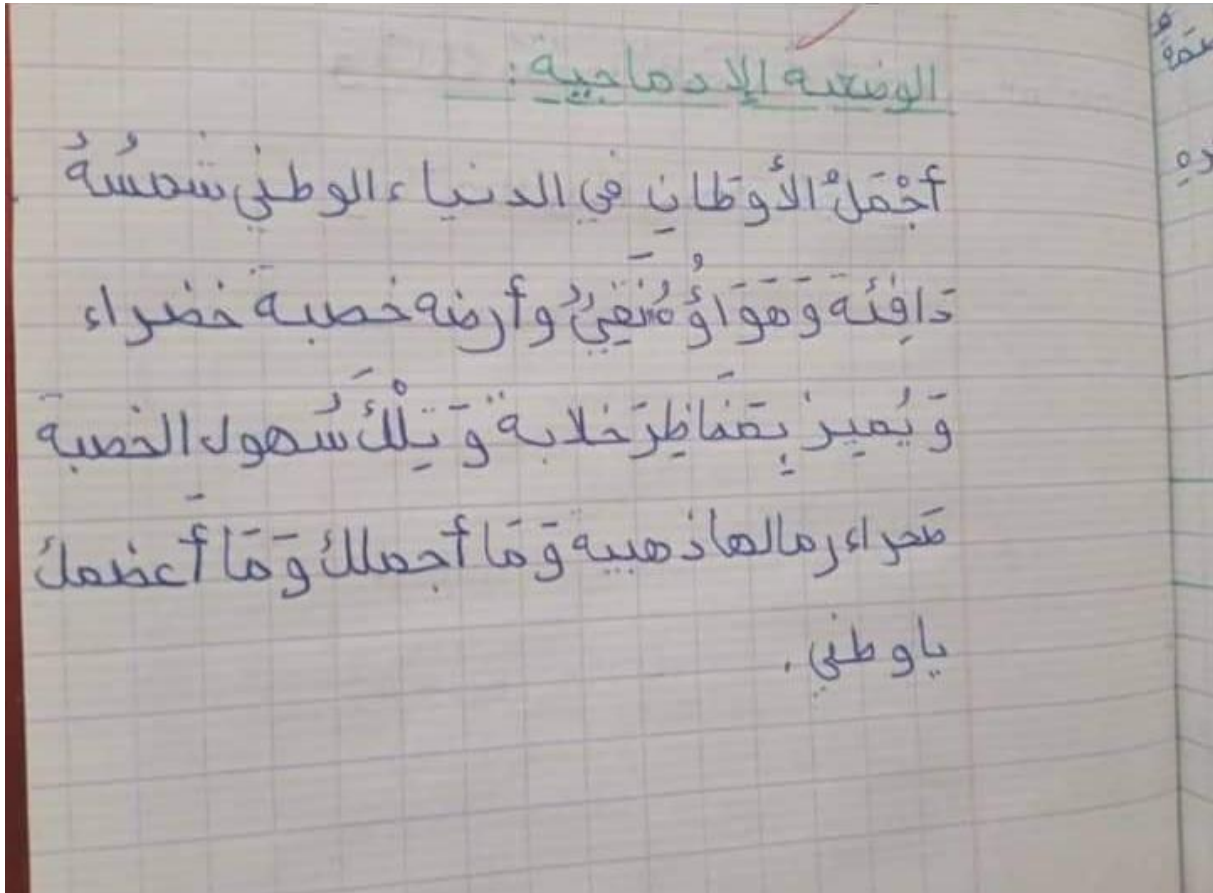 الوضعية الإدماجية:
أجْمَلُ الأَوطَانِ في الدنياء الوطني شمسُهُ
دَافِئَة وَهَوَاؤُهُ نَقِيٌ وأرضه خصبة خضراء
وَيُميز بِمَنَاظِرَ خلابة وَتِلْكَ سُهول الخصبة
صَحراء رمالها ذهبية وَمَا أجملك وَمَا أَعضمك
يا وطني.